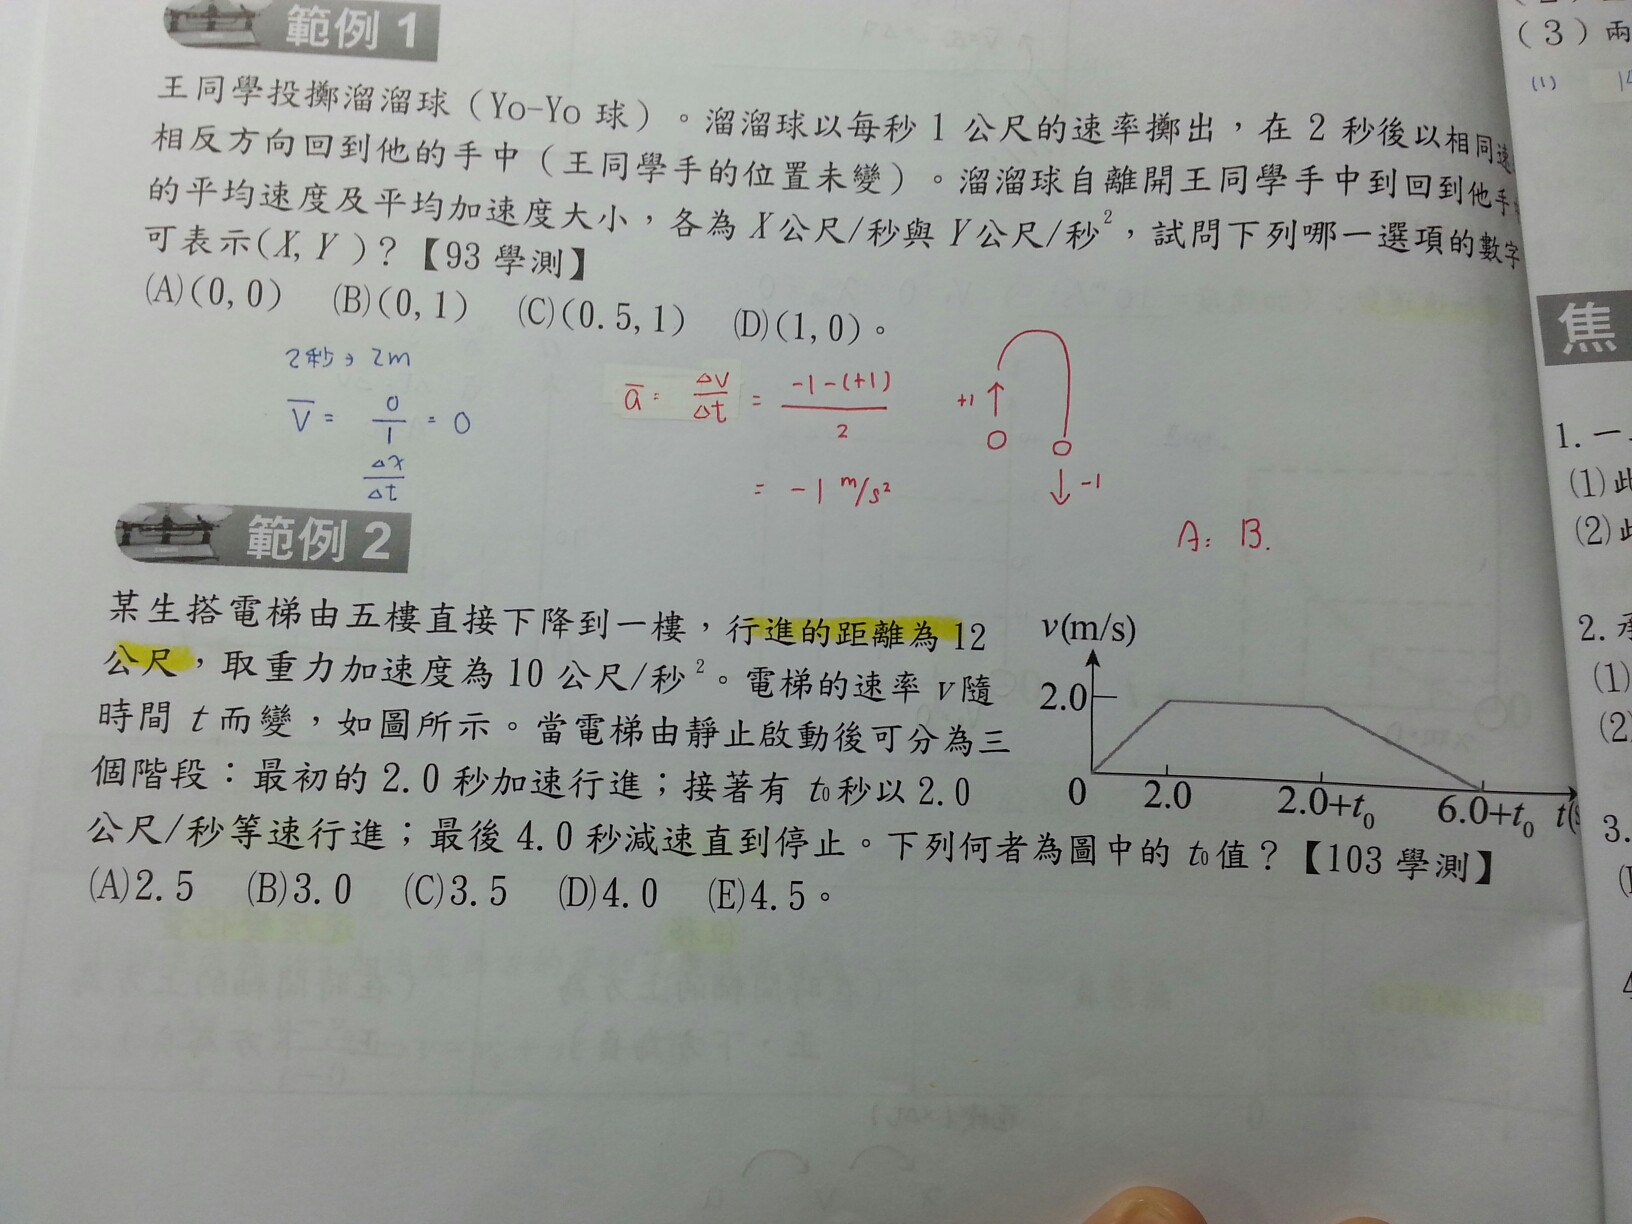 範例 1
王同學投擲溜溜球（Yo-Yo 球）。溜溜球以每秒 1 公尺的速率擲出，在 2 秒後以相同速
相反方向回到他的手中（王同學手的位置未變）。溜溜球自離開王同學手中到回到他手
的平均速度及平均加速度大小，各為 X 公尺/秒與 Y 公尺/秒²，試問下列哪一選項的數字
可表示(X, Y )？【93 學測】
(A)(0, 0) (B)(0, 1) (C)(0.5, 1) (D)(1, 0)。
2秒，2m
V̅ = 0/1 = 0
Δx/Δt
a̅ = Δv/Δt = -1-(+1)/2
= -1 m/s²
+1
-1
A: B.
範例 2
某生搭電梯由五樓直接下降到一樓，行進的距離為 12
公尺，取重力加速度為 10 公尺/秒²。電梯的速率 v 隨
時間 t 而變，如圖所示。當電梯由靜止啟動後可分為三
個階段：最初的 2.0 秒加速行進；接著有 t₀ 秒以 2.0
公尺/秒等速行進；最後 4.0 秒減速直到停止。下列何者為圖中的 t₀ 值？【103 學測】
(A)2.5 (B)3.0 (C)3.5 (D)4.0 (E)4.5。
v(m/s)
2.0
0 2.0 2.0+t₀ 6.0+t₀ t(s
(3) 兩
(1) 14
焦
1. 一
(1) 此
(2) 此
2. 承
(1)
(2)
3.
4